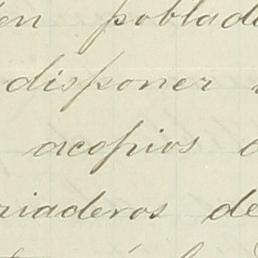 en poblad
disponer
acopios
riaderos de